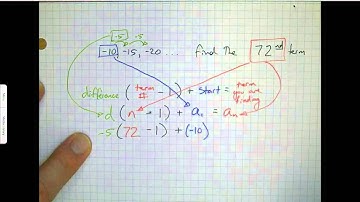 -5 -5
-10, -15, -20 .... find the 72nd term
difference (term # - 1) + start = term you are finding
d (n - 1) + a = a
-5 (72 - 1) + (-10)